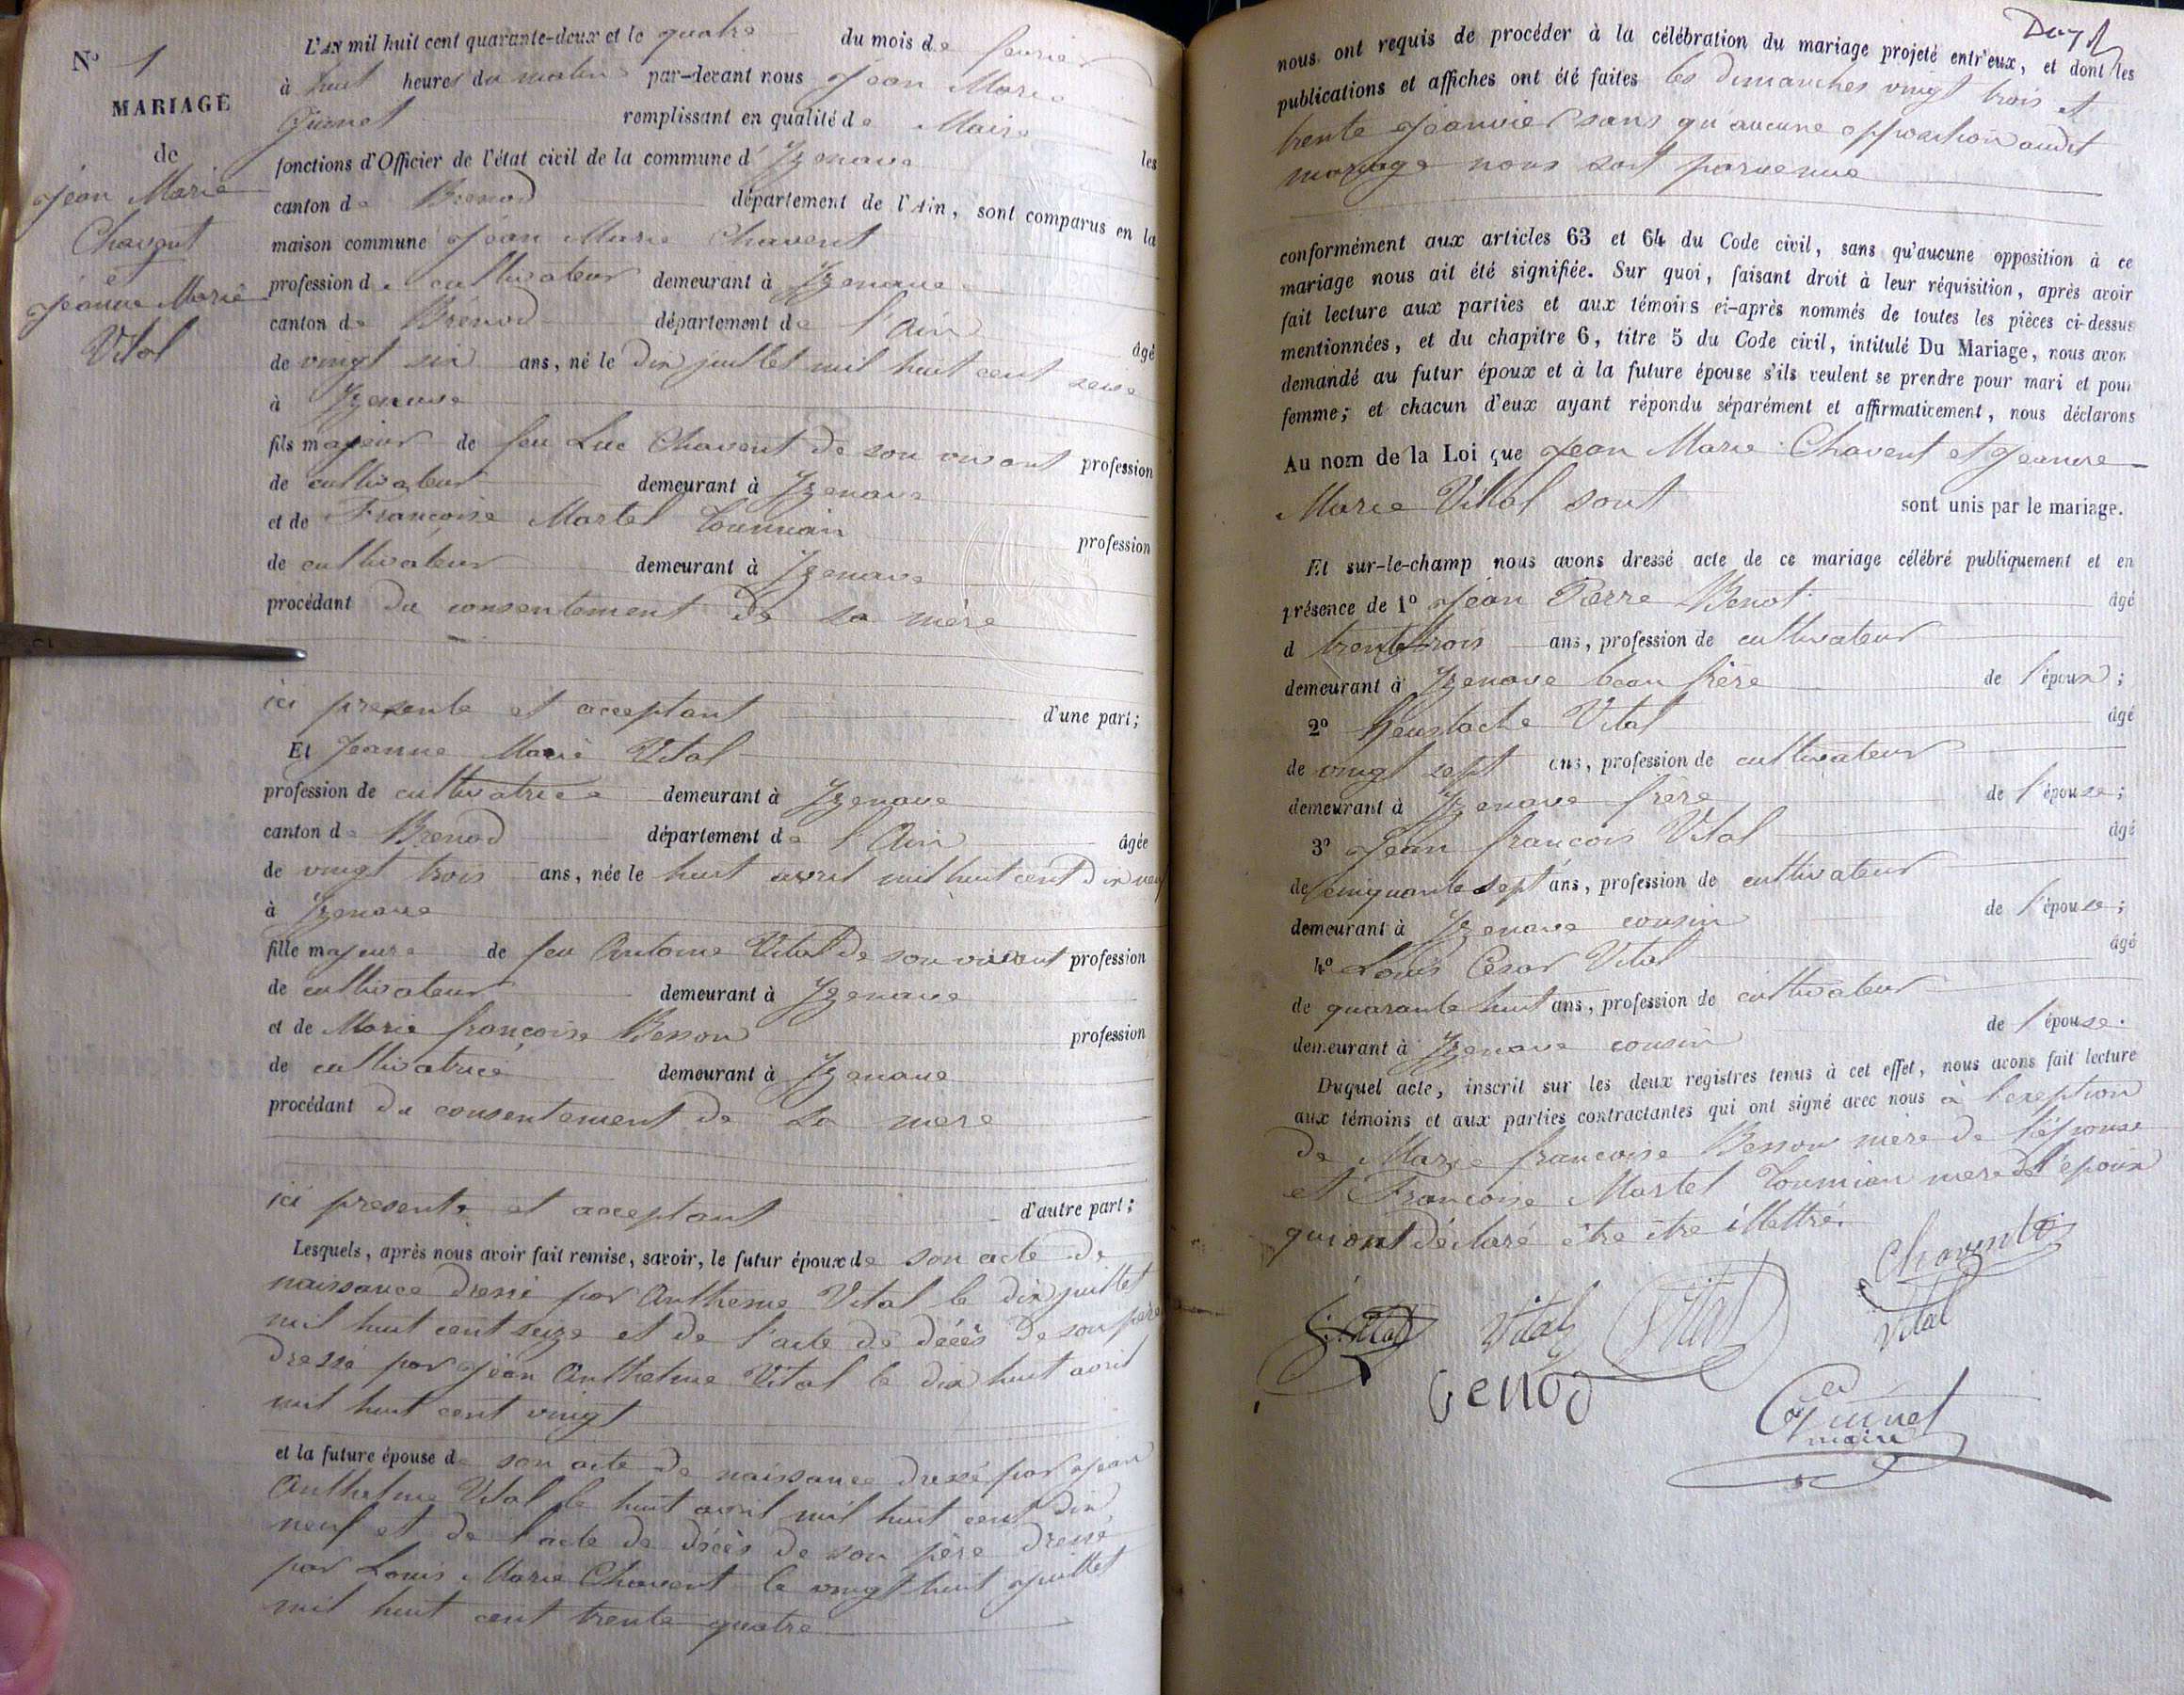 N° 1
MARIAGE
de
Jean Marie
Chavent
et
Jeanne Marie
Vital
L'AN mil huit cent quarante-deux et le quatre du mois de fevrier
à huit heures du matin par-devant nous Jean Marie
Guinet remplissant en qualité de Maire les
fonctions d'Officier de l'état civil de la commune d'Izenave
canton de Brenod département de l'Ain, sont comparus en la
maison commune Jean Marie Chavent
profession de cultivateur demeurant à Izenave
canton de Brénod département de l'Ain âgé
de vingt six ans, né le dix juillet mil huit cent seize
à Izenave
fils majeur de feu Luc Chavent de son vivant profession
de cultivateur demeurant à Izenave
et de Françoise Martel Tournian profession
de cultivateur demeurant à Izenave
procédant du consentement de sa mère
ici presente et acceptant d'une part;
Et Jeanne Marie Vital
profession de cultivatrice demeurant à Izenave
canton de Brenod département de l'Ain âgée
de vingt trois ans, née le huit avril mil huit cent dix neuf
à Izenave
fille majeure de feu Antoine Vital de son vivant profession
de cultivateur demeurant à Izenave
et de Marie françoise Besson profession
de cultivatrice demeurant à Izenave
procédant du consentement de sa mere
ici presente et acceptant d'autre part;
Lesquels, après nous avoir fait remise, savoir, le futur époux de son acte de
naissance dressé par Anthelme Vital le dix juillet
mil huit cent seize et de l'acte de décès de son père
dressé par Jean Anthelme Vital le dix huit avril
mil huit cent vingt
et la future épouse de son acte de naissance dressé par Jean
Anthelme Vital le huit avril mil huit cent dix
neuf et de l'acte de décès de son père dressé
par Louis Marie Chavent le vingt huit juillet
mil huit cent trente quatre
nous ont requis de procéder à la célébration du mariage projeté entr'eux, et dont les
publications et affiches ont été faites les dimanches vingt trois et
trente Jeanvier sans qu'aucune opposition audit
mariage nous soit parvenue
conformément aux articles 63 et 64 du Code civil, sans qu'aucune opposition à ce
mariage nous ait été signifiée. Sur quoi, faisant droit à leur réquisition, après avoir
fait lecture aux parties et aux témoins ci-après nommés de toutes les pièces ci-dessus
mentionnées, et du chapitre 6, titre 5 du Code civil, intitulé Du Mariage, nous avon
demandé au futur époux et à la future épouse s'ils veulent se prendre pour mari et pour
femme; et chacun d'eux ayant répondu séparément et affirmativement, nous déclarons
Au nom de la Loi que Jean Marie Chavent et Jeanne
Marie Vital sont sont unis par le mariage.
Et sur-le-champ nous avons dressé acte de ce mariage célébré publiquement et en
présence de 1° Jean Pierre Benot âgé
d trente trois ans, profession de cultivateur
demeurant à Izenave beau frère de l'époux;
2° Heustache Vital âgé
de vingt sept ans, profession de cultivateur
demeurant à Izenave frère de l'épouse;
3° Jean françois Vital âgé
de cinquante sept ans, profession de cultivateur
demeurant à Izenave cousin de l'épouse;
4° Louis Cesar Vital âgé
de quarante huit ans, profession de cultivateur
demeurant à Izenave cousin de l'épouse.
Duquel acte, inscrit sur les deux registres tenus à cet effet, nous avons fait lecture
aux témoins et aux parties contractantes qui ont signé avec nous à l'exeption
de Marie françoise Besson mère de l'épouse
et Françoise Martel Tournian mere de l'époux
qui ont déclaré être être illettré.
Chavent
Vital Vital Vital Vital
Guinet
maire